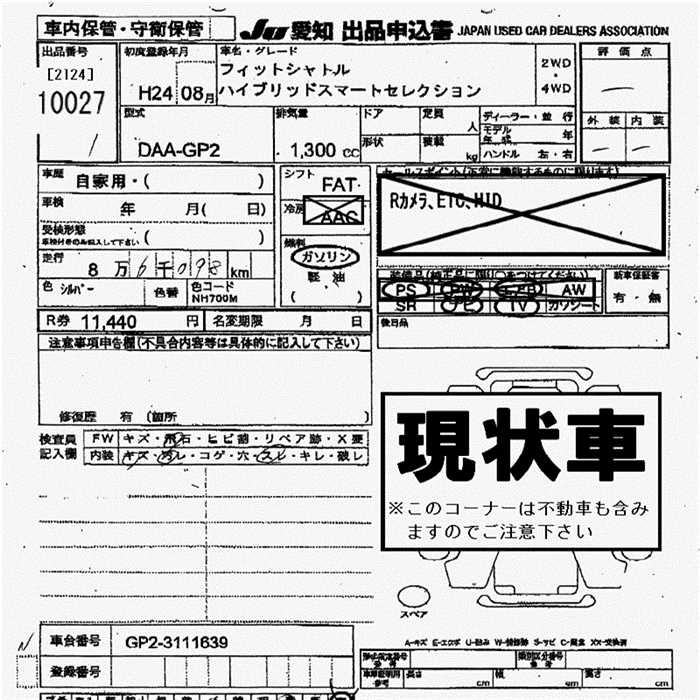 車内保管・守衛保管
JU 愛知 出品申込書 JAPAN USED CAR DEALERS ASSOCIATION
出品番号
[2124]
10027
初度登録年月
H24 08月
車名・グレード
フィットシャトル
ハイブリッドスマートセレクション
2WD
・
4WD
評価点
外装 内装
型式
DAA-GP2
排気量
1,300 cc
ドア
形状
定員
人
積載
kg
ディーラー・並行
モデル年式 年
ハンドル 左・右
車歴 自家用・( )
車検 年 月( 日)
受検形態
車検付きのみ記入して下さい ( )
走行 8万6千098km
色 シルバー 色替 色コード
NH700M
シフト
FAT
冷房
AAC
燃料
ガソリン
軽油
( )
セールスポイント(正常に機能するものに限ります)
Rカメラ、ETC、HID
装備品(純正品に限り○をつけてください)
PS PW エアB AW
SR ナビ TV カワシート
新車保証書
有・無
後日品
R券 11,440 円 名変期限 月 日
注意事項申告欄(不具合内容等は具体的に記入して下さい)
修復歴 有 (箇所 )
検査員
記入欄
FW キズ・飛石・ヒビ割・リペア跡・X要
内装 キズ・汚レ・コゲ・穴・スレ・キレ・破レ
現状車
※このコーナーは不動車も含み
ますのでご注意下さい
スペア
A-キズ E-エクボ U-凹み W-補修跡 S-サビ C-腐食 XX-交換済
車台番号 GP2-3111639
登録番号
型式指定番号
類別区分番号
長さ cm 幅 cm 高さ cm